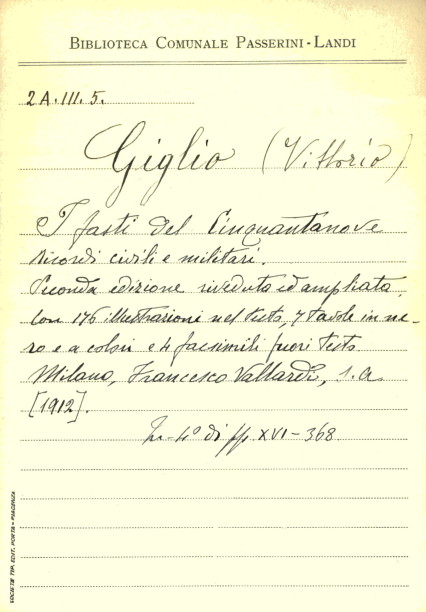 BIBLIOTECA COMUNALE PASSERINI-LANDI
2A.III.5.
Giglio (Vittorio)
I fasti del Cinquantanove
Ricordi civili e militari.
Seconda edizione riveduta ed ampliata,
con 176 illustrazioni nel testo, 7 tavole in ne-
ro e a colori e 4 facsimili fuori testo.
Milano, Francesco Vallardi, s.a
[1912].
In-4° di pp. XVI-368.
SOCIETÀ TIP. EDIT. PORTA-PIACENZA